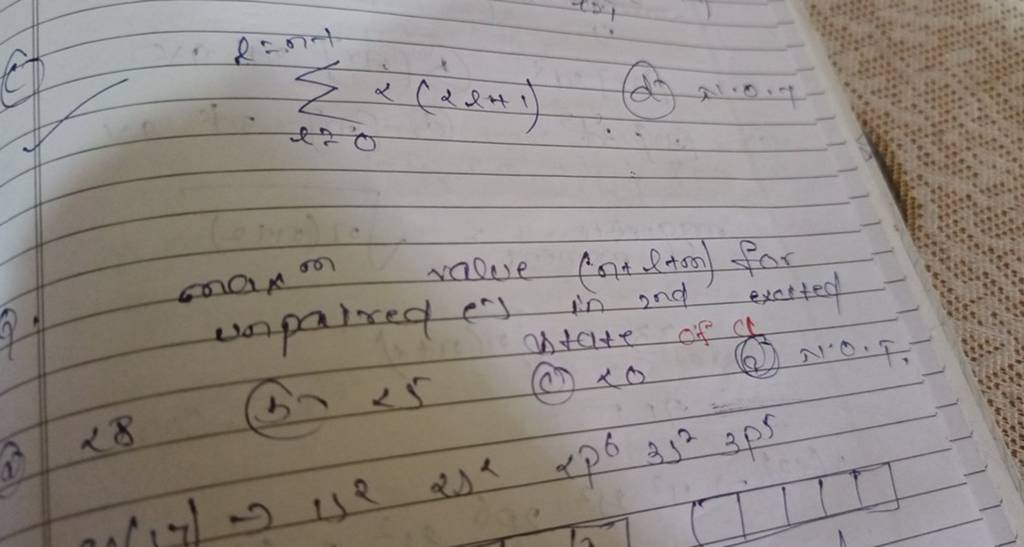 l=n-1
C) Σ 2 (2l+1) d) N.O.T
l=0
Q. maxᵐ value (n+l+m) for
unpaired e⁻s in 2nd excited
state of Cl
a) 28 b) 25 c) 20 d) N.O.T.
(17) → 1s² 2s² 2p⁶ 3s² 3p⁵